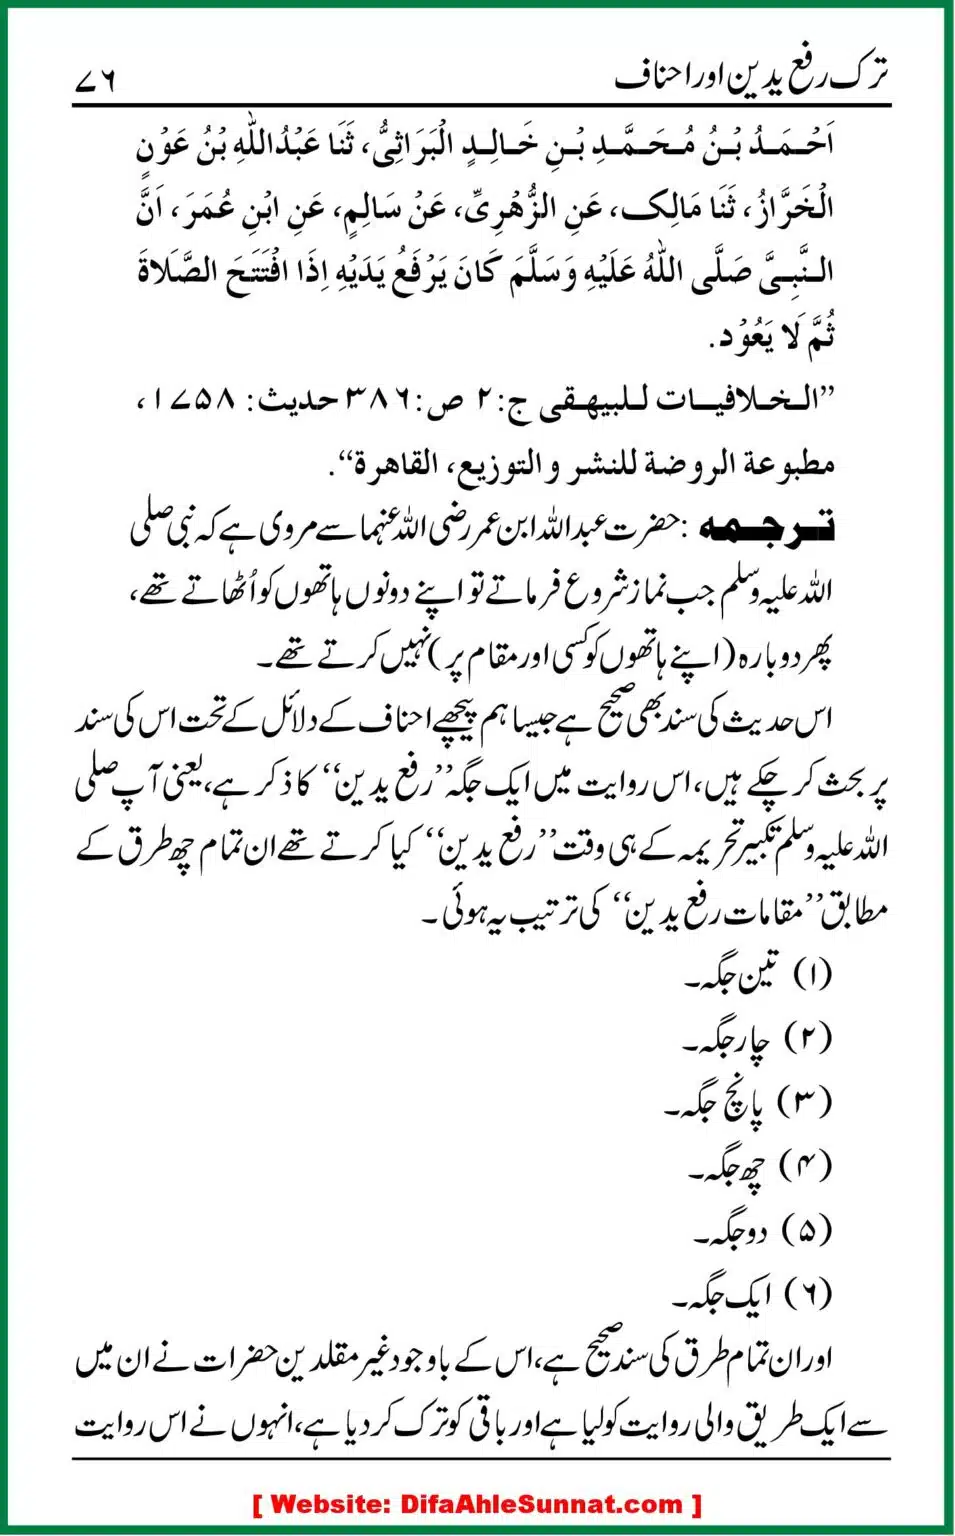 ترک رفع یدین اور احناف ۷۶
اَحْمَدُ بْنُ مُحَمَّدِ بْنِ خَالِدٍ الْبَرَاثِیُّ، ثَنَا عَبْدُاللّٰہِ بْنُ عَوْنٍ
الْخَرَّازُ، ثَنَا مَالِک، عَنِ الزُّھْرِیِّ، عَنْ سَالِمٍ، عَنِ ابْنِ عُمَرَ، اَنَّ
النَّبِیَّ صَلَّی اللّٰہُ عَلَیْہِ وَسَلَّمَ کَانَ یَرْفَعُ یَدَیْہِ اِذَا افْتَتَحَ الصَّلَاۃَ
ثُمَّ لَا یَعُوْد.
’’الخلافیات للبیھقی ج:۲ ص:۳۸۶ حدیث: ۱۷۵۸،
مطبوعة الروضة للنشر والتوزیع، القاھرة‘‘.
ترجمہ: حضرت عبداللہ ابن عمر رضی اللہ عنہما سے مروی ہے کہ نبی صلی
اللہ علیہ وسلم جب نماز شروع فرماتے تو اپنے دونوں ہاتھوں کو اُٹھاتے تھے،
پھر دوبارہ (اپنے ہاتھوں کو کسی اور مقام پر) نہیں کرتے تھے۔
اس حدیث کی سند بھی صحیح ہے جیسا ہم پیچھے احناف کے دلائل کے تحت اس کی سند
پر بحث کر چکے ہیں، اس روایت میں ایک جگہ ’’رفع یدین‘‘ کا ذکر ہے، یعنی آپ صلی
اللہ علیہ وسلم تکبیر تحریمہ کے ہی وقت ’’رفع یدین‘‘ کیا کرتے تھے ان تمام چھ طرق کے
مطابق ’’مقامات رفع یدین‘‘ کی ترتیب یہ ہوئی۔
(۱) تین جگہ۔
(۲) چار جگہ۔
(۳) پانچ جگہ۔
(۴) چھ جگہ۔
(۵) دو جگہ۔
(۶) ایک جگہ۔
اور ان تمام طرق کی سند صحیح ہے، اس کے باوجود غیر مقلدین حضرات نے ان میں
سے ایک طریق والی روایت کو لیا ہے اور باقی کو ترک کر دیا ہے، انہوں نے اس روایت
[ Website: DifaAhleSunnat.com ]